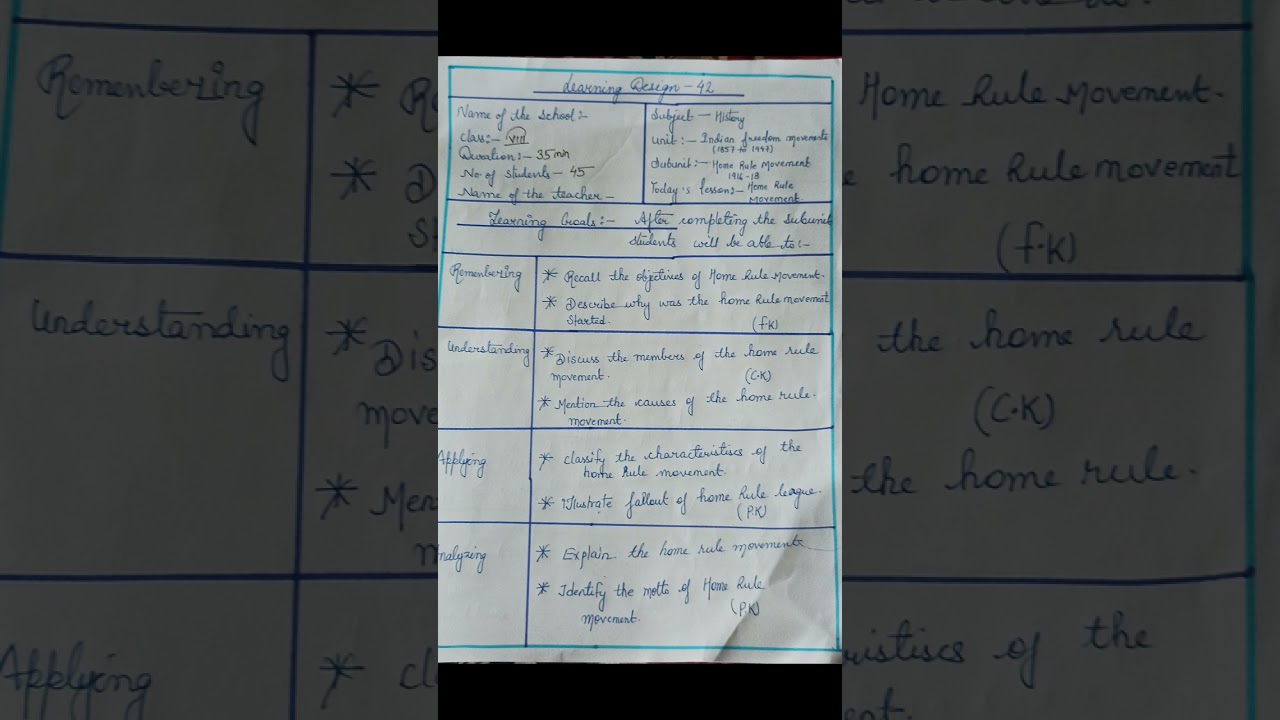 Learning Design - 42
Name of the school:-
Class:- VIII
Duration:- 35 min
No of students - 45
Name of the teacher -
Subject - History
Unit:- Indian freedom movements
(1857 to 1947)
Subunit:- Home Rule Movement
1916-18
Today's lesson:- Home Rule
Movement.
Learning Goals:- After completing the subunit
students will be able to:-
Remembering
* Recall the objectives of Home Rule Movement.
* Describe why was the home Rule movement
started. (f.K)
Understanding
* Discuss the members of the home rule
movement. (C.K)
* Mention the causes of the home rule.
movement.
Applying
* Classify the characteristiscs of the
home Rule movement.
* illustrate fallout of home Rule league.
(P.K)
Analyzing
* Explain the home rule movement
* Identify the motto of Home Rule
movement. (P.K)